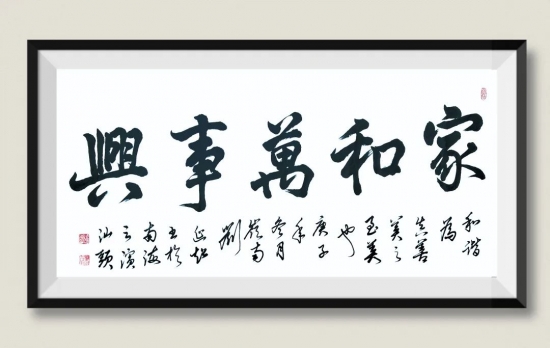 家和萬事興
和諧
為
真善
美之
至美
也
庚子
年
冬月
嶺南
劉
書於
南海
之濱
汕頭